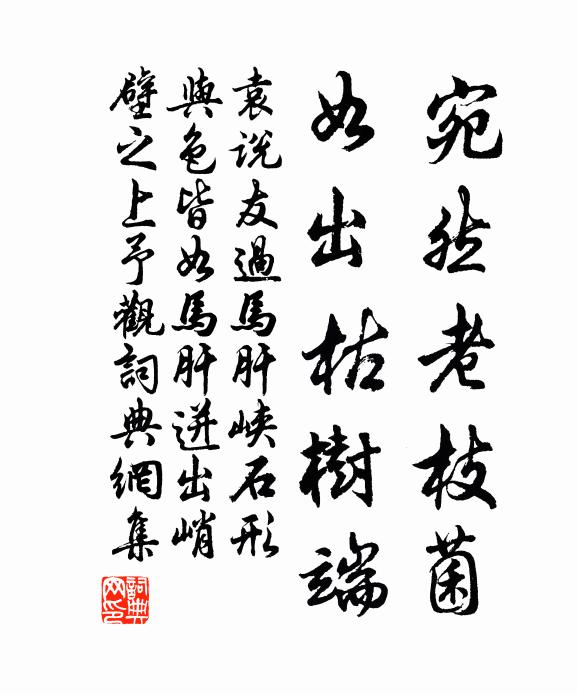 宛然老枝菌
如出枯樹端
袁說友過馬肝峽石形
與色皆如馬肝迸出峭
壁之上予觀詞典網集
詞典
网印